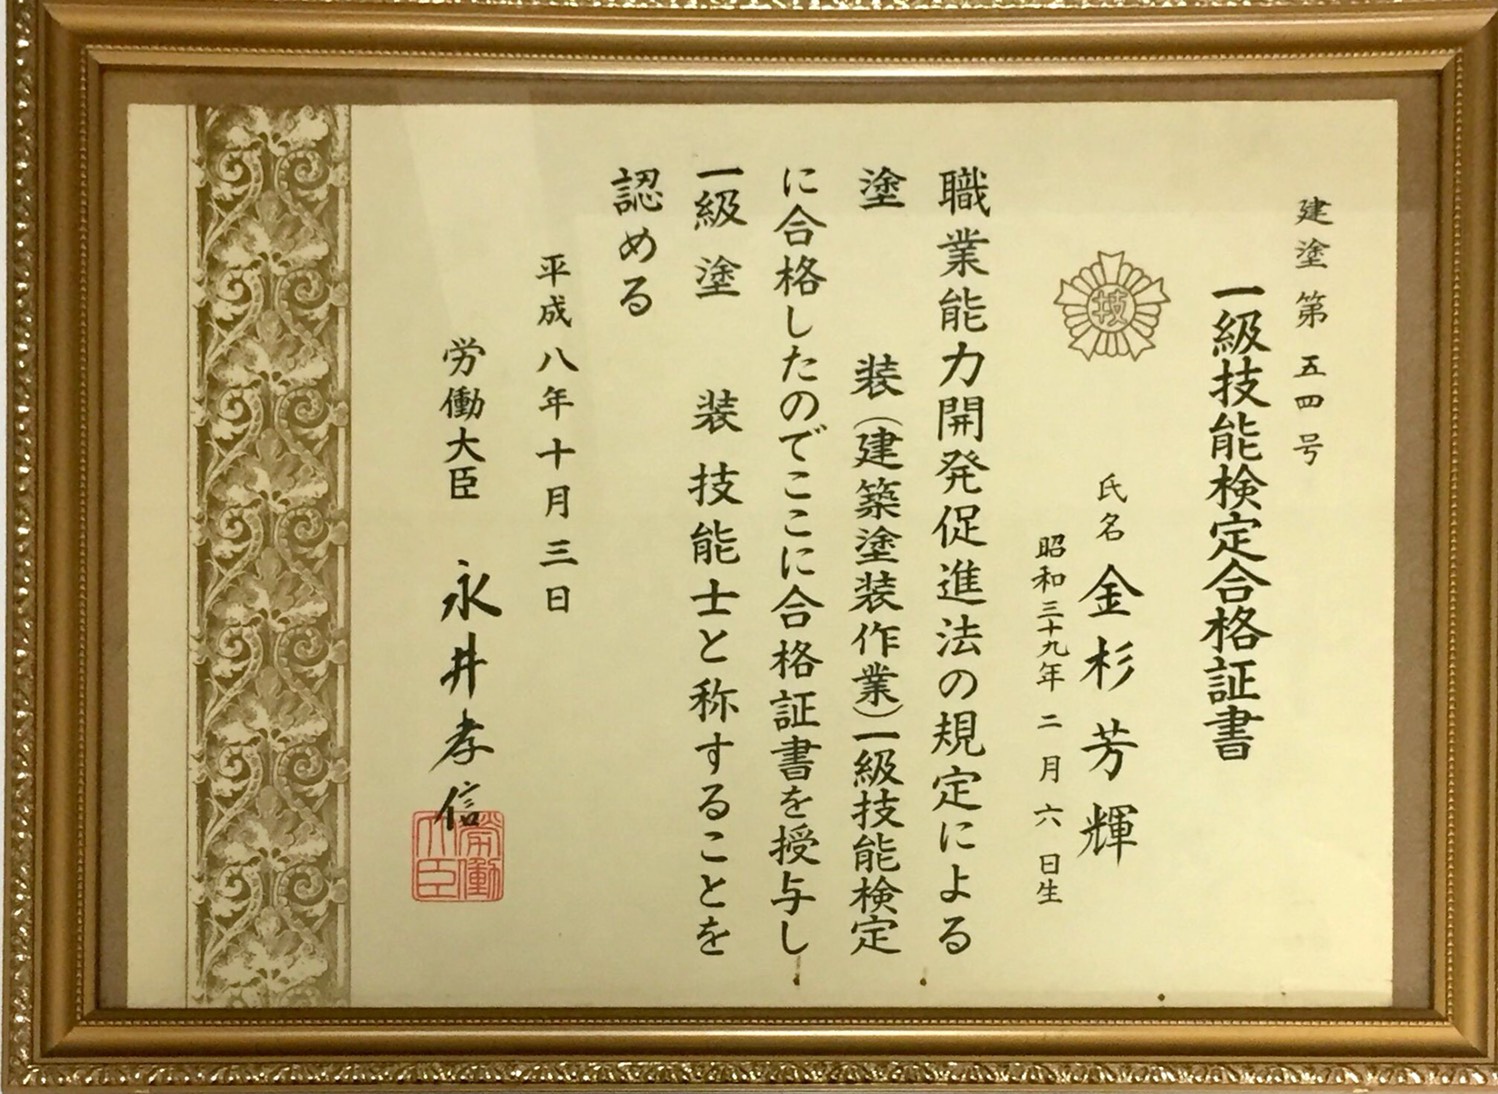 建塗第五四号
一級技能検定合格証書
技
氏名 金杉芳輝
昭和三十九年二月六日生
職業能力開発促進法の規定による
塗装(建築塗装作業)一級技能検定
に合格したのでここに合格証書を授与し
一級塗装技能士と称することを
認める
平成八年十月三日
労働大臣 永井孝信
労働
大臣